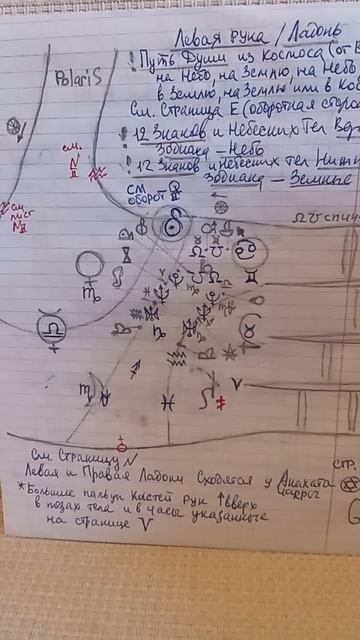 Левая рука / Ладонь
! Путь Души из Космоса (от В
на Небо, на Землю, на Небо
в Землю, на Землю или в Ко
См. Страница Е (оборотная сторо
! 12 Знаков и Небесных Тел Вер
Зодиака - Небо
! 12 Знаков и Небесных тел Нижн
Зодиака - Земные
Polaris
см.
N
II
см.
лист
N II
СМ
оборот
см. Страницу N
Левая и Правая Ладони Сходятся у Анахата
чакры
стр.
* Большие пальцы Кистей Рук ↑ вверх
в позах тела и в часы указанные
на странице V